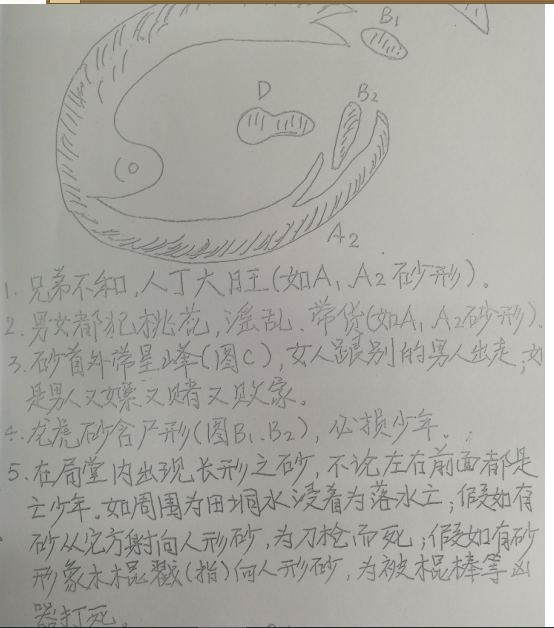 B1
D
B2
A2
1. 兄弟不和,人丁大旺(如A1、A2砂形)。
2. 男女都犯桃花,淫乱、带货(如A1、A2砂形)。
3. 砂首外带星峰(图C),女人跟别的男人出走;如
是男人又嫖又赌又败家。
4. 龙虎砂含尸形(图B1、B2),必损少年。
5. 在局堂内出现长形之砂,不论左右前面都是
亡少年。如周围为田垌水浸着为落水亡;假如有
砂从它方射向人形砂,为刀枪而死;假如有砂
形象木棍戳(指)向人形砂,为被棍棒等凶
器打死。